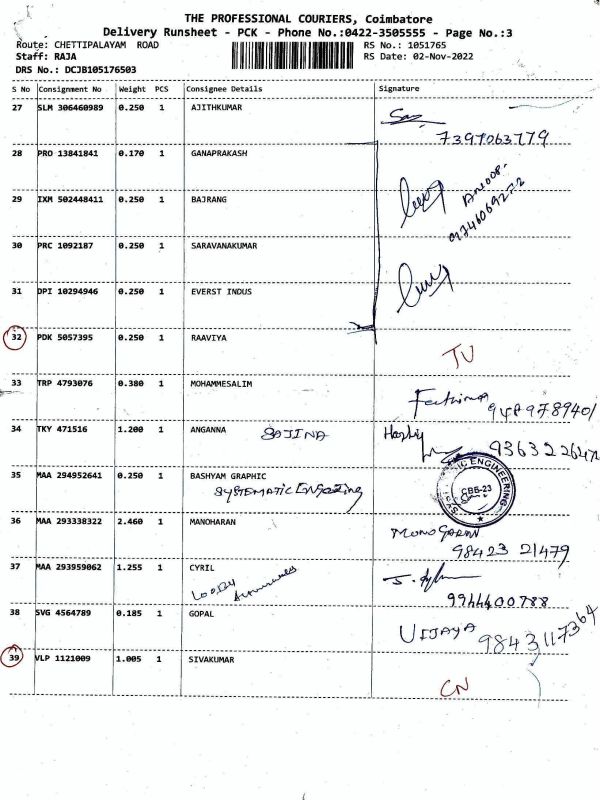 THE PROFESSIONAL COURIERS, Coimbatore
Delivery Runsheet - PCK - Phone No.:0422-3505555 - Page No.:3
Route: CHETTIPALAYAM ROAD RS No.: 1051765
Staff: RAJA RS Date: 02-Nov-2022
DRS No.: DCJB105176503
S No Consignment No Weight PCS Consignee Details Signature
27 SLM 306460989 0.250 1 AJITHKUMAR
7397063779
28 PRO 13841841 0.170 1 GANAPRAKASH
29 IXM 502448411 0.250 1 BAJRANG
30 PRC 1092187 0.250 1 SARAVANAKUMAR
31 DPI 10294946 0.250 1 EVERST INDUS
32 PDK 5057395 0.250 1 RAAVIYA
33 TRP 4793076 0.380 1 MOHAMMESALIM
Fathima
34 TKY 471516 1.200 1 ANGANNA SAJINA
35 MAA 294952641 0.250 1 BASHYAM GRAPHIC
SYSTEMATIC ENGINEERING CBE-23
36 MAA 293338322 2.460 1 MANOHARAN
98423 21479
37 MAA 293959062 1.255 1 CYRIL
9944400788
38 SVG 4564789 0.185 1 GOPAL VIJAYA 9843117364
39 VLP 1121009 1.005 1 SIVAKUMAR
CN